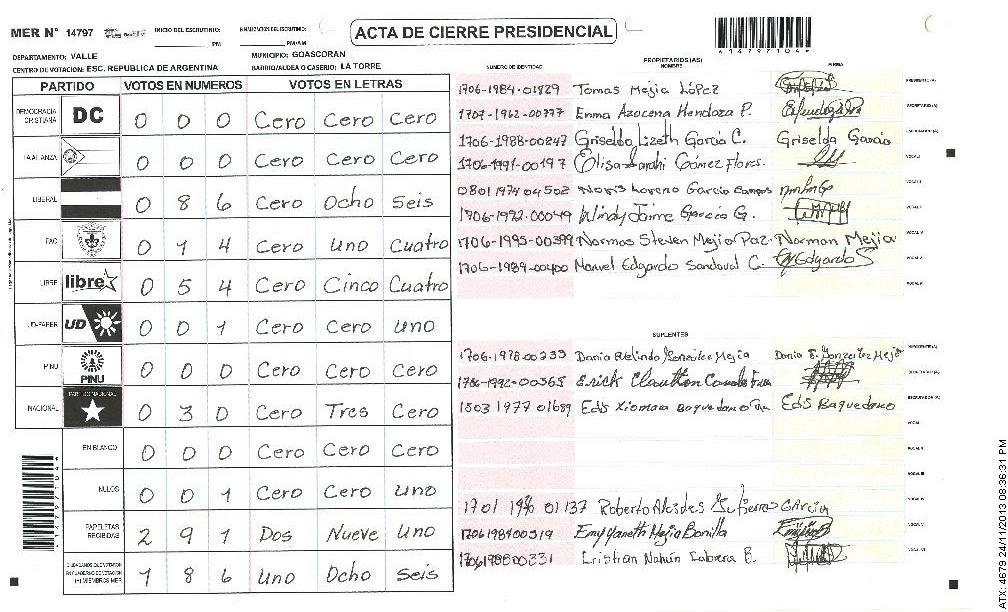 MER N° 14797 INICIO DEL ESCRUTINIO: PM FINALIZACION DEL ESCRUTINIO: PM/AM
ACTA DE CIERRE PRESIDENCIAL
*14797104*
DEPARTAMENTO: VALLE MUNICIPIO: GOASCORAN
CENTRO DE VOTACION: ESC. REPUBLICA DE ARGENTINA BARRIO/ALDEA O CASERIO: LA TORRE
PARTIDO VOTOS EN NUMEROS VOTOS EN LETRAS
DEMOCRACIA CRISTIANA DC 0 0 0 Cero Cero Cero
LA ALIANZA 0 0 0 Cero Cero Cero
LIBERAL 0 8 6 Cero Ocho Seis
PAC 0 1 4 Cero Uno Cuatro
LIBRE libre 0 5 4 Cero Cinco Cuatro
UD-FAPER UD 0 0 1 Cero Cero Uno
PINU PINU 0 0 0 Cero Cero Cero
NACIONAL PARTIDO NACIONAL 0 3 0 Cero Tres Cero
EN BLANCO 0 0 0 Cero Cero Cero
NULOS 0 0 1 Cero Cero Uno
PAPELETAS RECIBIDAS 2 9 1 Dos Nueve Uno
1 8 6 Uno Ocho Seis
PROPIETARIOS (AS)
NUMERO DE IDENTIDAD NOMBRE FIRMA
1706-1984-01829 Tomas Mejia López PRESIDENTE (A)
1707-1962-00777 Enma Azocena Mendoza P. SECRETARIO (A)
1706-1988-00847 Griselda Lizeth García C. Griselda García ESCRUTADOR (A)
1706-1991-00197 Elisa Sarahi Gómez Flores. VOCAL I
0801 1974 04502 Noris Lorena Garcia Campos VOCAL II
1706-1972-00049 Windy Jaime García G.
1706-1995-00399 Normas Steven Mejia Paz. Norman Mejia
1706-1989-00400 Manuel Edgardo Sandoval C. Edgardo S
SUPLENTES
1706-1978-00233 Dania Gonzalez Mejia Dania E. Gonzalez Mejia PRESIDENTE (A)
1706-1992-00365 Erick SECRETARIO (A)
1503 1977 01689 Edis Xiomara Baquedano Edis Baquedano ESCRUTADOR (A)
VOCAL I
VOCAL II
VOCAL III
1701 01137 Roberto Alcides Gutierres Garcia VOCAL IV
1706198400319 Emy Yaneth Mejia Bonilla VOCAL V
Cristian Nahún Cabrera B. VOCAL VI
ATX: 4679 24/11/2013 08:36:31 PM